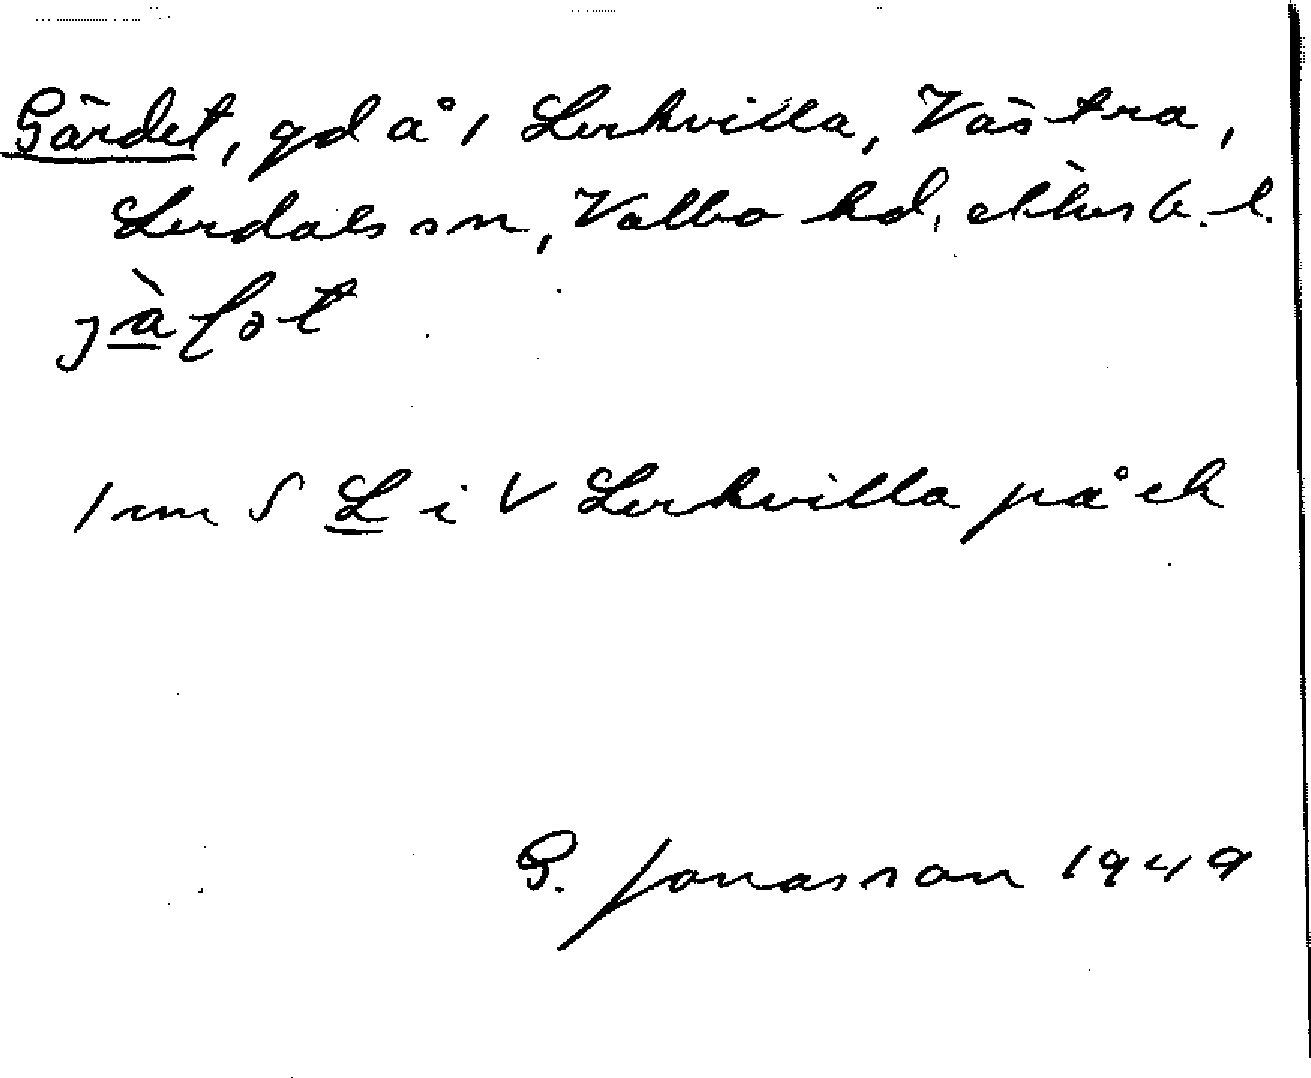 Gärdet, gd å 1 Lerkvilla, Västra,
Lerdals sn, Valbo hd,
1 mm S L i V Lerkvilla på ek
G. Jonasson 1949